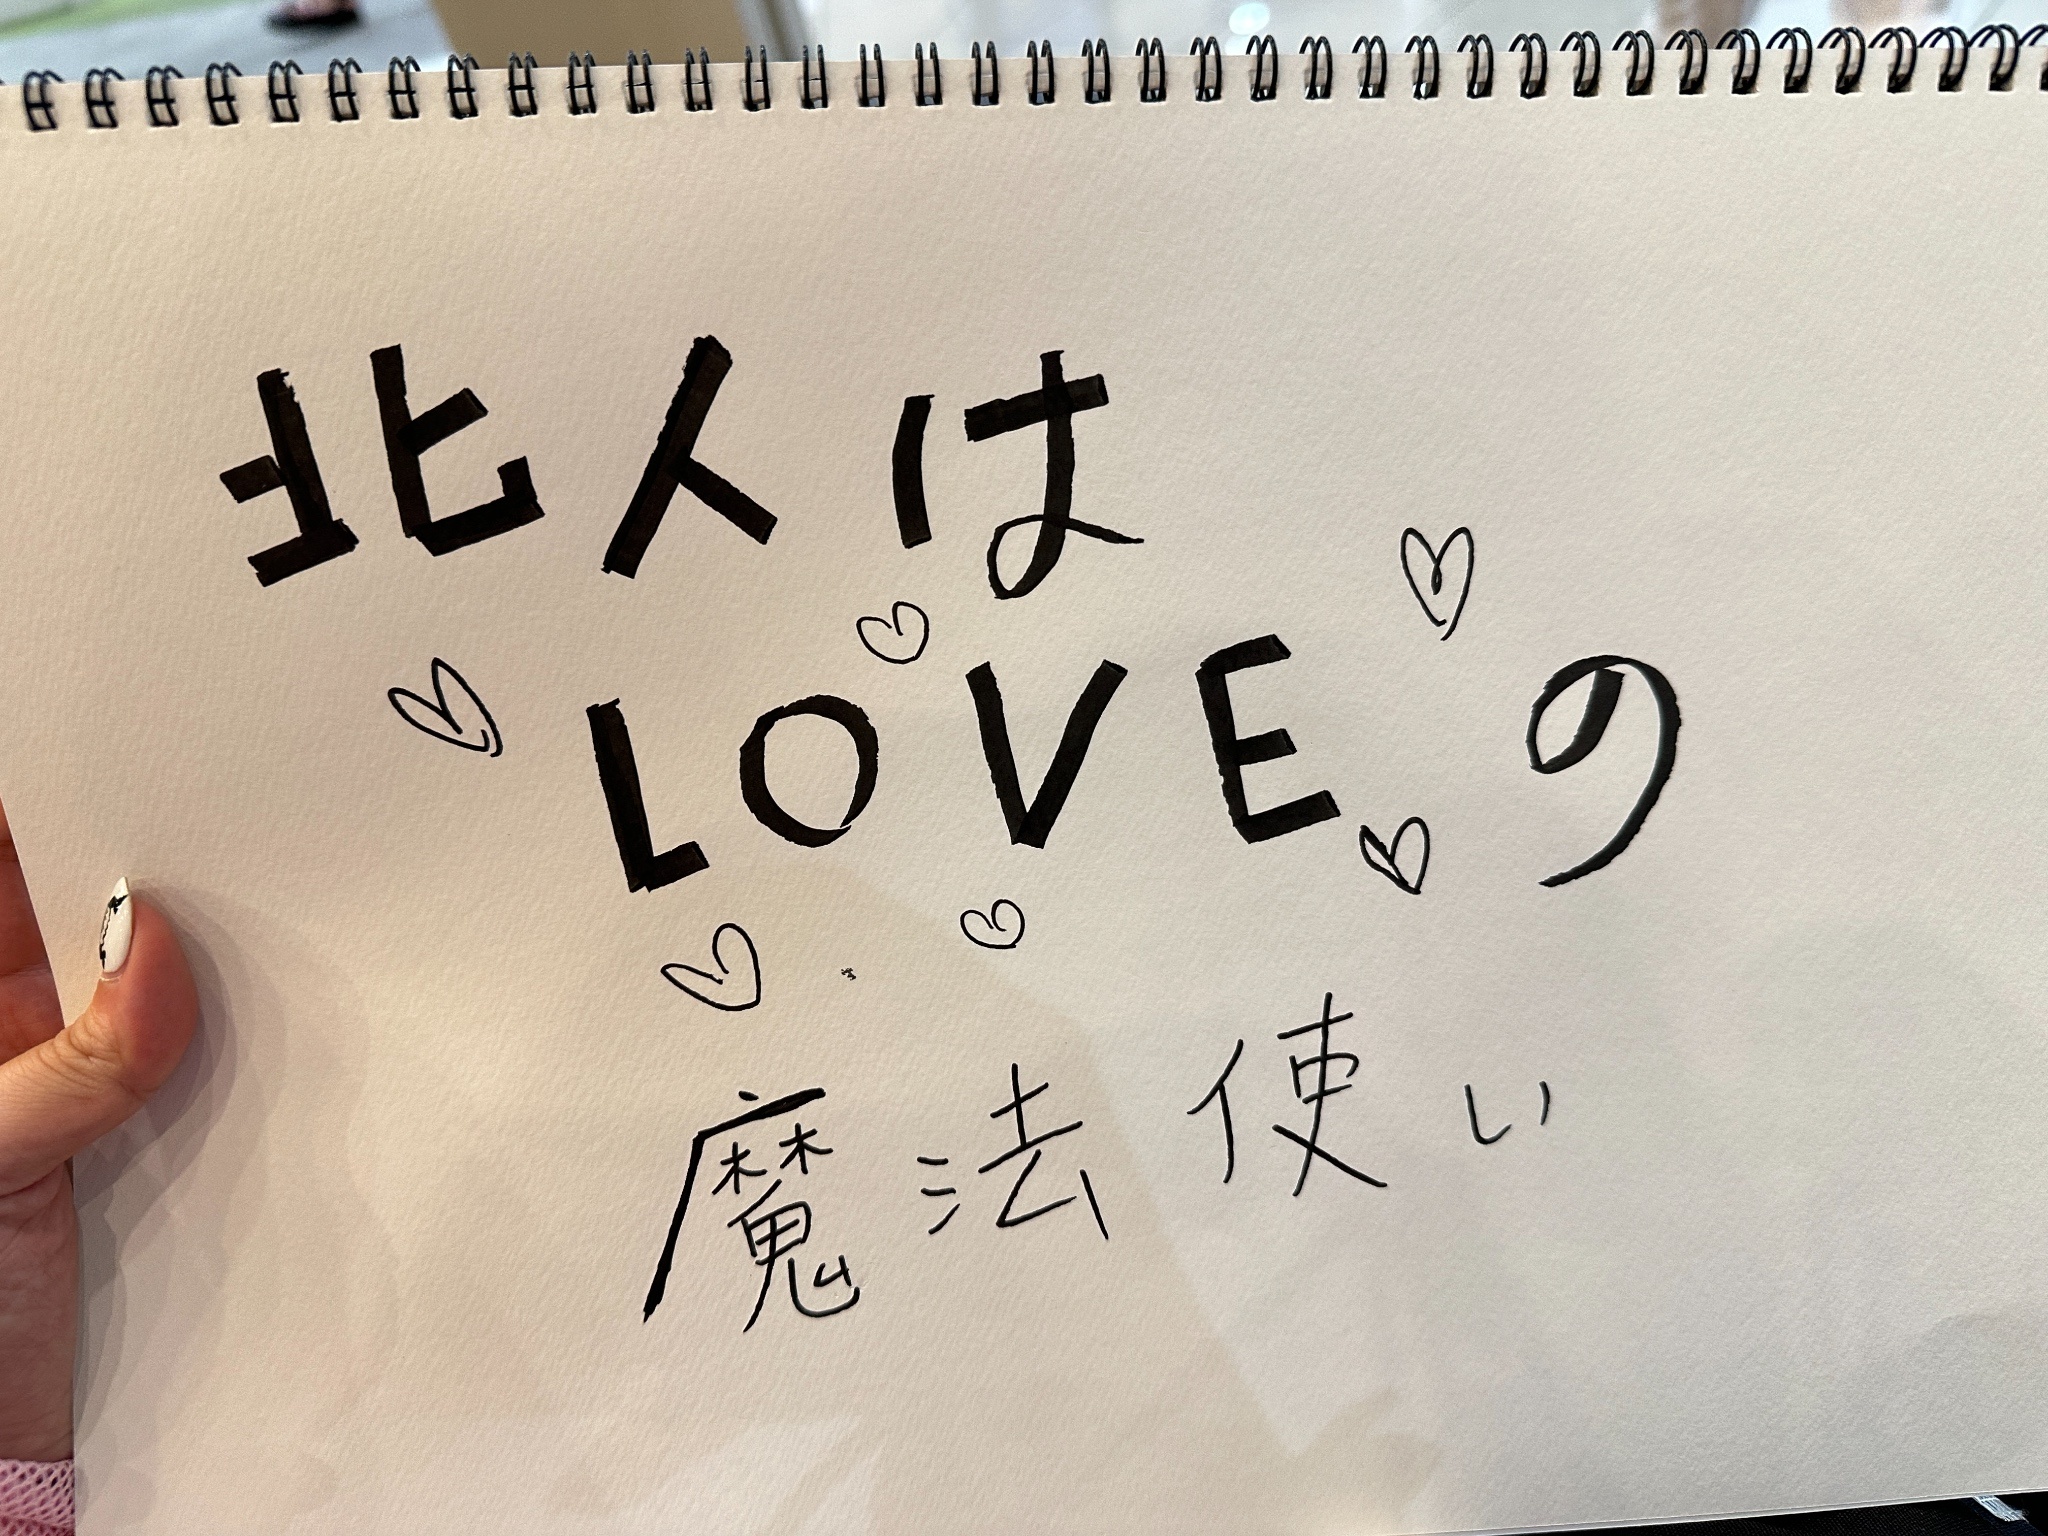 北人は
LOVEの
魔法使い